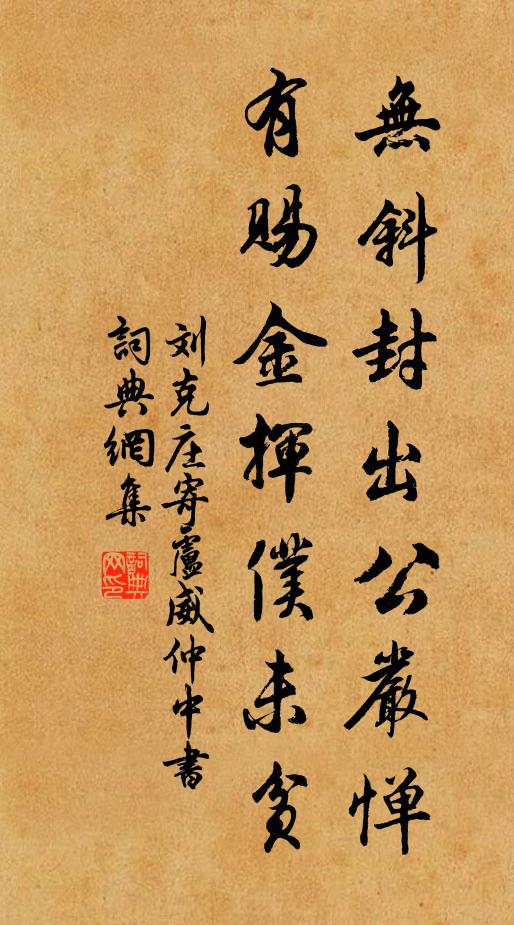 無斜封出公嚴惮
有賜金揮僕未貧
刘克庄寄盧威仲中書
詞典網集
詞典网印